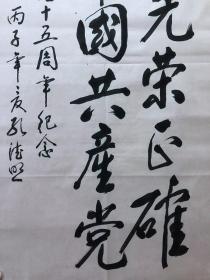 光荣正確
國共產党
十五周年纪念
丙子年夏孔德照